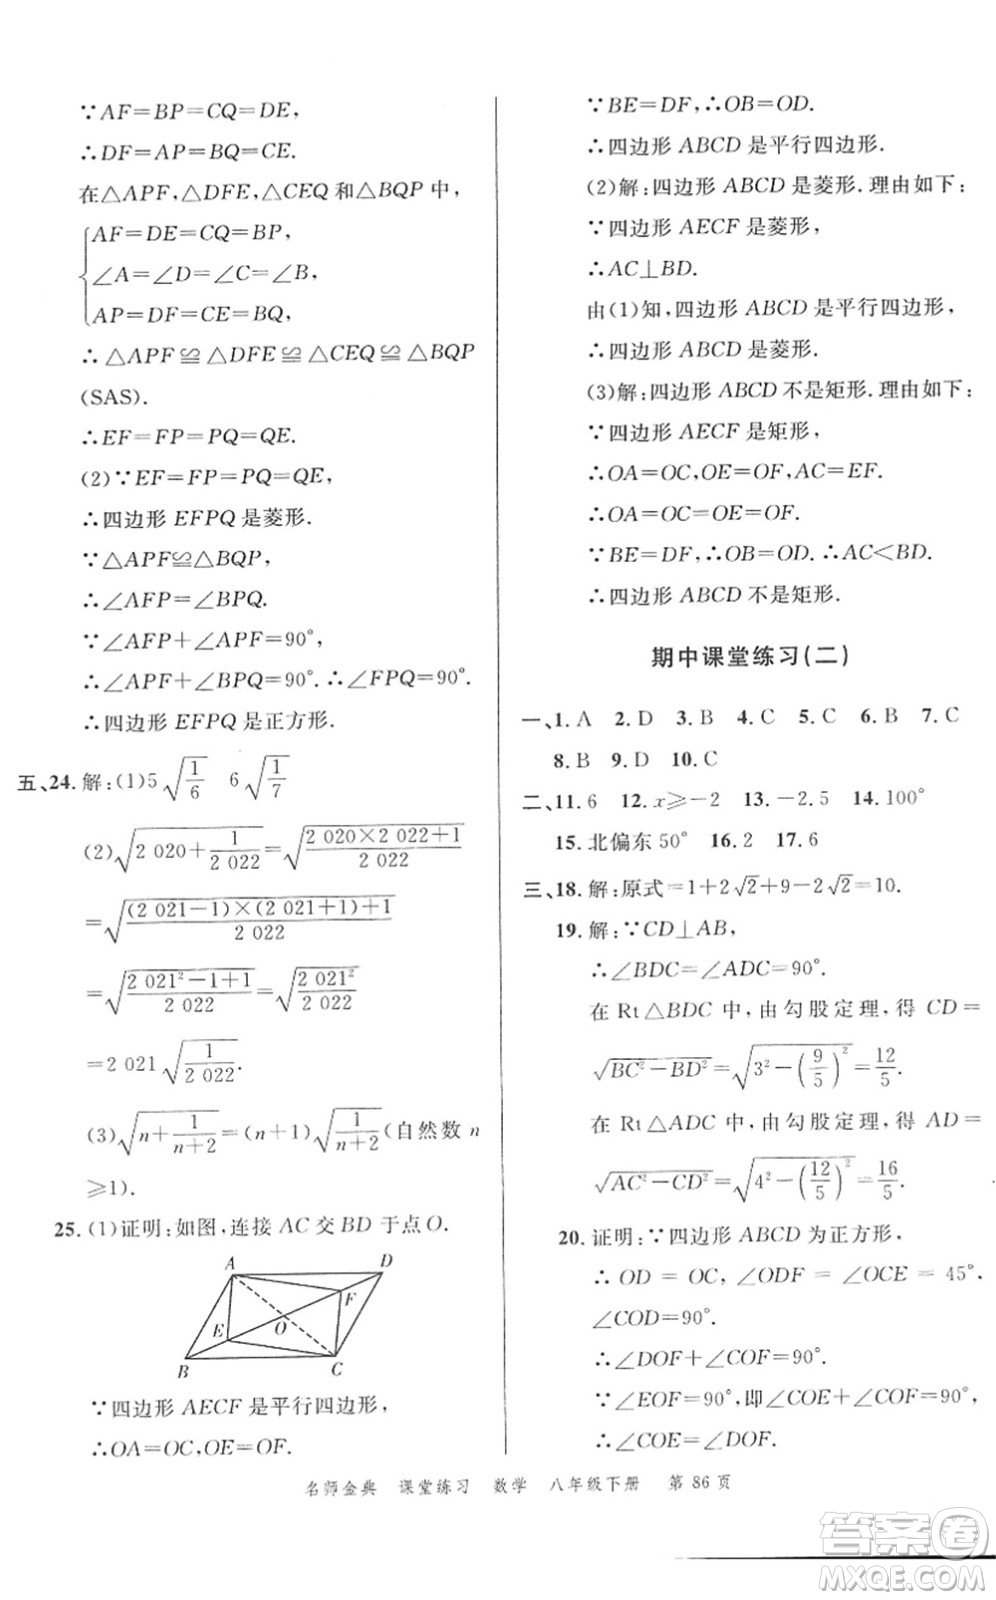 ∵AF=BP=CQ=DE,
∴DF=AP=BQ=CE.
在△APF,△DFE,△CEQ和△BQP中,
AF=DE=CQ=BP,
∠A=∠D=∠C=∠B,
AP=DF=CE=BQ,
∴△APF≌△DFE≌△CEQ≌△BQP
(SAS).
∴EF=FP=PQ=QE.
(2)∵EF=FP=PQ=QE,
∴四边形EFPQ是菱形.
∵△APF≌△BQP,
∴∠AFP=∠BPQ.
∵∠AFP+∠APF=90°,
∴∠APF+∠BPQ=90°.∴∠FPQ=90°.
∴四边形EFPQ是正方形.
五、24.解:(1)5√(1/6) 6√(1/7)
(2)√(2 020+1/2 022)=√((2 020×2 022+1)/2 022)
=√(((2 021-1)×(2 021+1)+1)/2 022)
=√((2 021²-1+1)/2 022)=√(2 021²/2 022)
=2 021√(1/2 022).
(3)√(n+1/(n+2))=(n+1)√(1/(n+2))(自然数n
≥1).
25.(1)证明:如图,连接AC交BD于点O.
A D
F
E O
B C
∵四边形AECF是平行四边形,
∴OA=OC,OE=OF.
∵BE=DF,∴OB=OD.
∴四边形ABCD是平行四边形.
(2)解:四边形ABCD是菱形.理由如下:
∵四边形AECF是菱形,
∴AC⊥BD.
由(1)知,四边形ABCD是平行四边形,
∴四边形ABCD是菱形.
(3)解:四边形ABCD不是矩形.理由如下:
∵四边形AECF是矩形,
∴OA=OC,OE=OF,AC=EF.
∴OA=OC=OE=OF.
∵BE=DF,∴OB=OD.∴AC<BD.
∴四边形ABCD不是矩形.
期中课堂练习(二)
一、1.A 2.D 3.B 4.C 5.C 6.B 7.C
8.B 9.D 10.C
二、11.6 12.x≥-2 13.-2.5 14.100°
15.北偏东50° 16.2 17.6
三、18.解:原式=1+2√2+9-2√2=10.
19.解:∵CD⊥AB,
∴∠BDC=∠ADC=90°.
在Rt△BDC中,由勾股定理,得CD=
√(BC²-BD²)=√(3²-(9/5)²)=12/5.
在Rt△ADC中,由勾股定理,得AD=
√(AC²-CD²)=√(4²-(12/5)²)=16/5.
20.证明:∵四边形ABCD为正方形,
∴OD=OC,∠ODF=∠OCE=45°.
∠COD=90°.
∴∠DOF+∠COF=90°.
∵∠EOF=90°,即∠COE+∠COF=90°,
∴∠COE=∠DOF.
名师金典 课堂练习 数学 八年级下册 第86页
答案卷
MXQE.COM